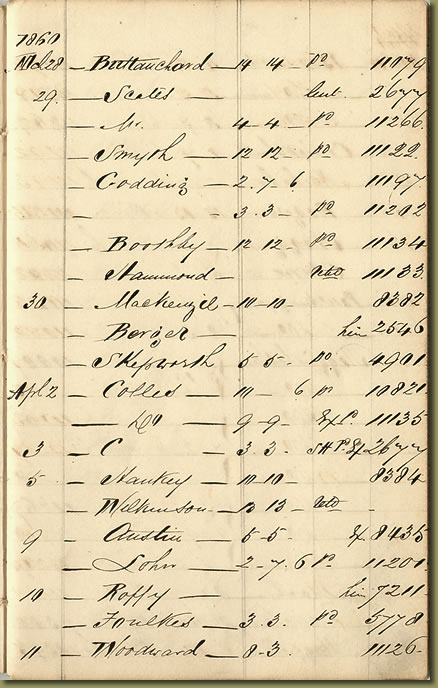 1860
Mch 28 — Buttanshard — 14 14 — pd 11079
29 — Scates — lent 2677
— Mr. 4 — 4 — pd 11266
— Smyth 12 12 — pd 11122
— Godding — 2 . 7 . 6 11197
— — 3 . 3 — pd 11202
— Boothby — 12 12 — pd 11134
Hammond — 11133
30 — Mackenzie — 10 — 10 — 8382
— Berger — 2546
— Skipworth 5 5 — pd 4901
Apl 2 — Colles — 10 — 6 pd 10821
— Do — 9 — 9 — 11135
3 — C — 3 . 3 . 2677
5 — Hankey — 10 10 8384
— Wilkinson — 13 13 —
9 — Austin — 5 — 5 — 8435
— John — 2 — 7 . 6 pd 11201
10 — Roffy — 7211
— Foulkes — 3 . 3 . pd 5778
11 — Woodward — 8 — 3 . 11126